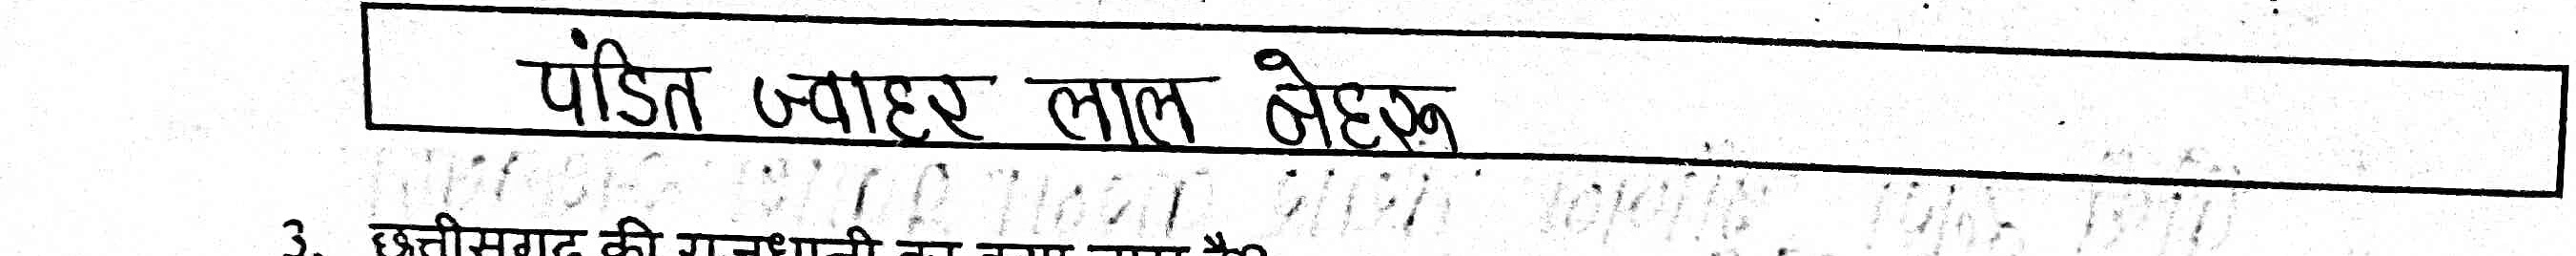 पंडित ज्वाहर लाल नेहरू
3. छत्तीसगढ़ की राजधानी का क्या नाम है?